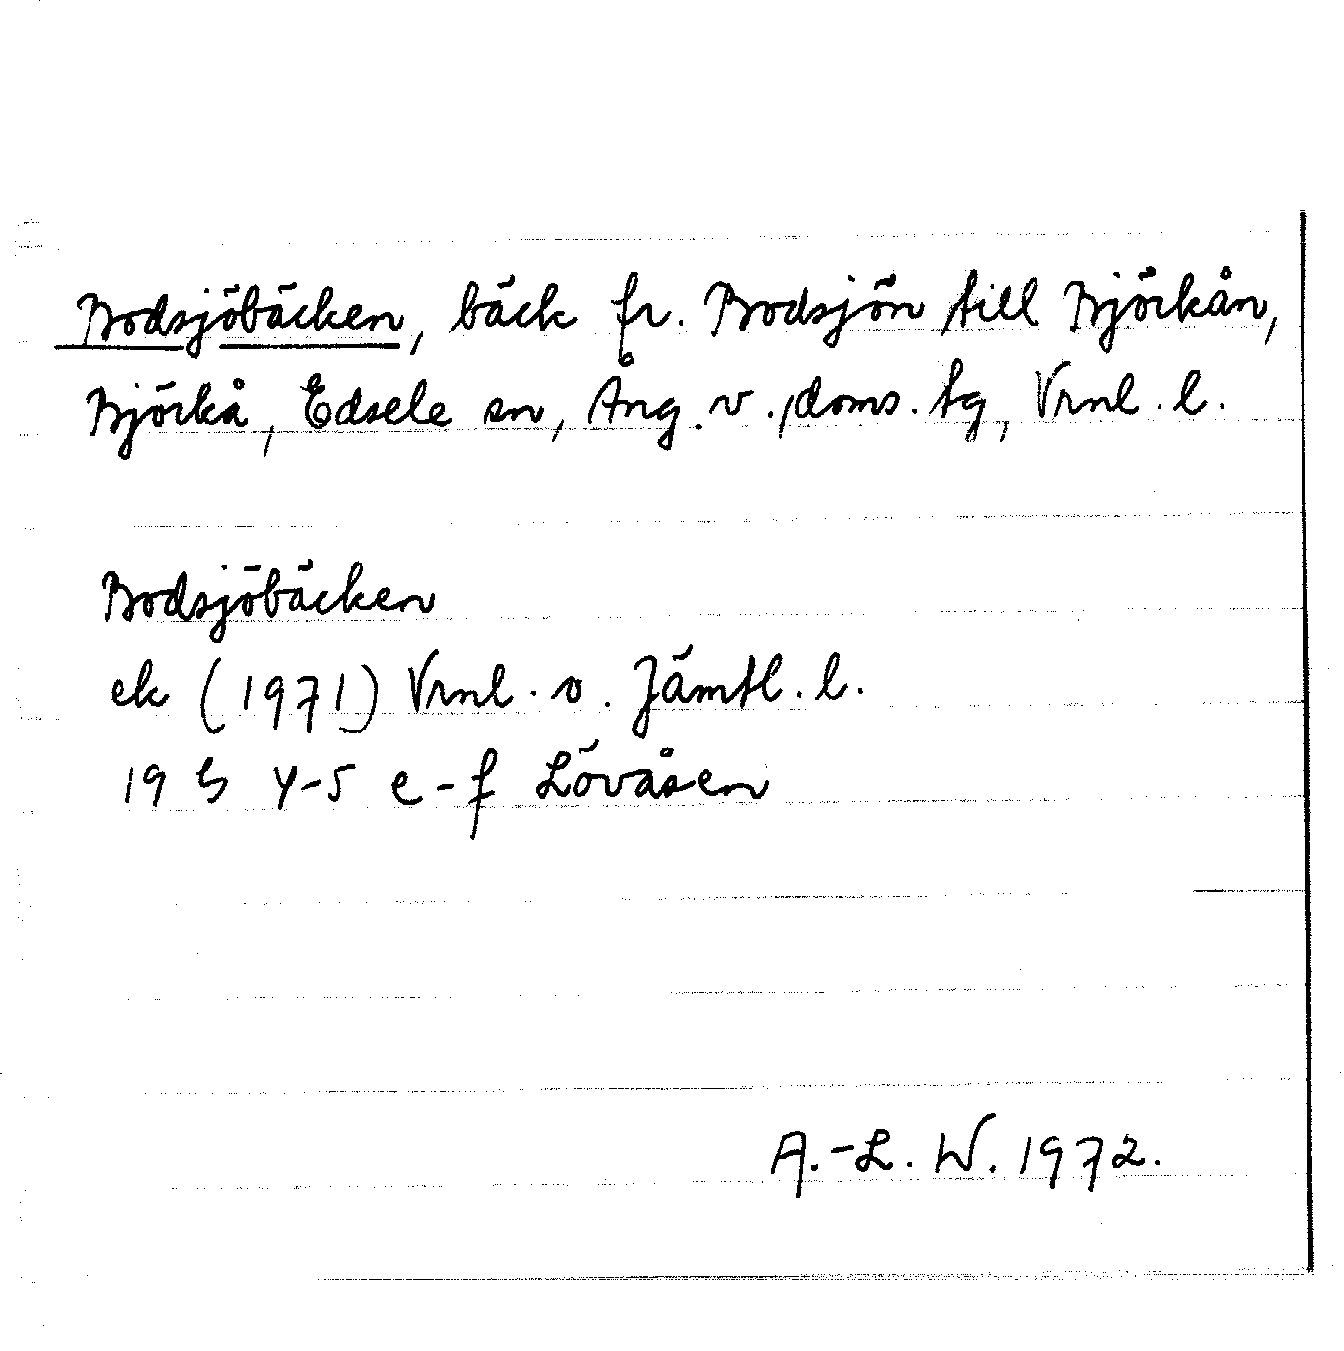 Bodsjöbäcken, bäck fr. Bodsjön till Björkån,
Björkå, Edsele sn, Ång. v., doms. tg, Vrnl. l.
Bodsjöbäcken
ek (1971) Vrnl. o. Jämtl. l.
19 G 4-5 e-f Lövåsen
A.-L. W. 1972.